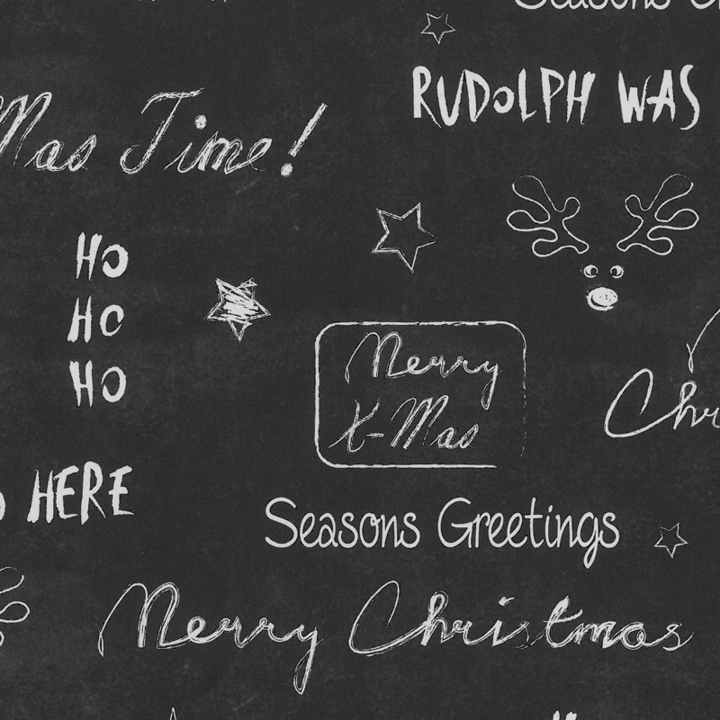 Seasons G
RUDOLPH WAS
Mas Time!
HO
HO
HO
Merry
X-Mas
Chr
HERE
Seasons Greetings
Merry Christmas